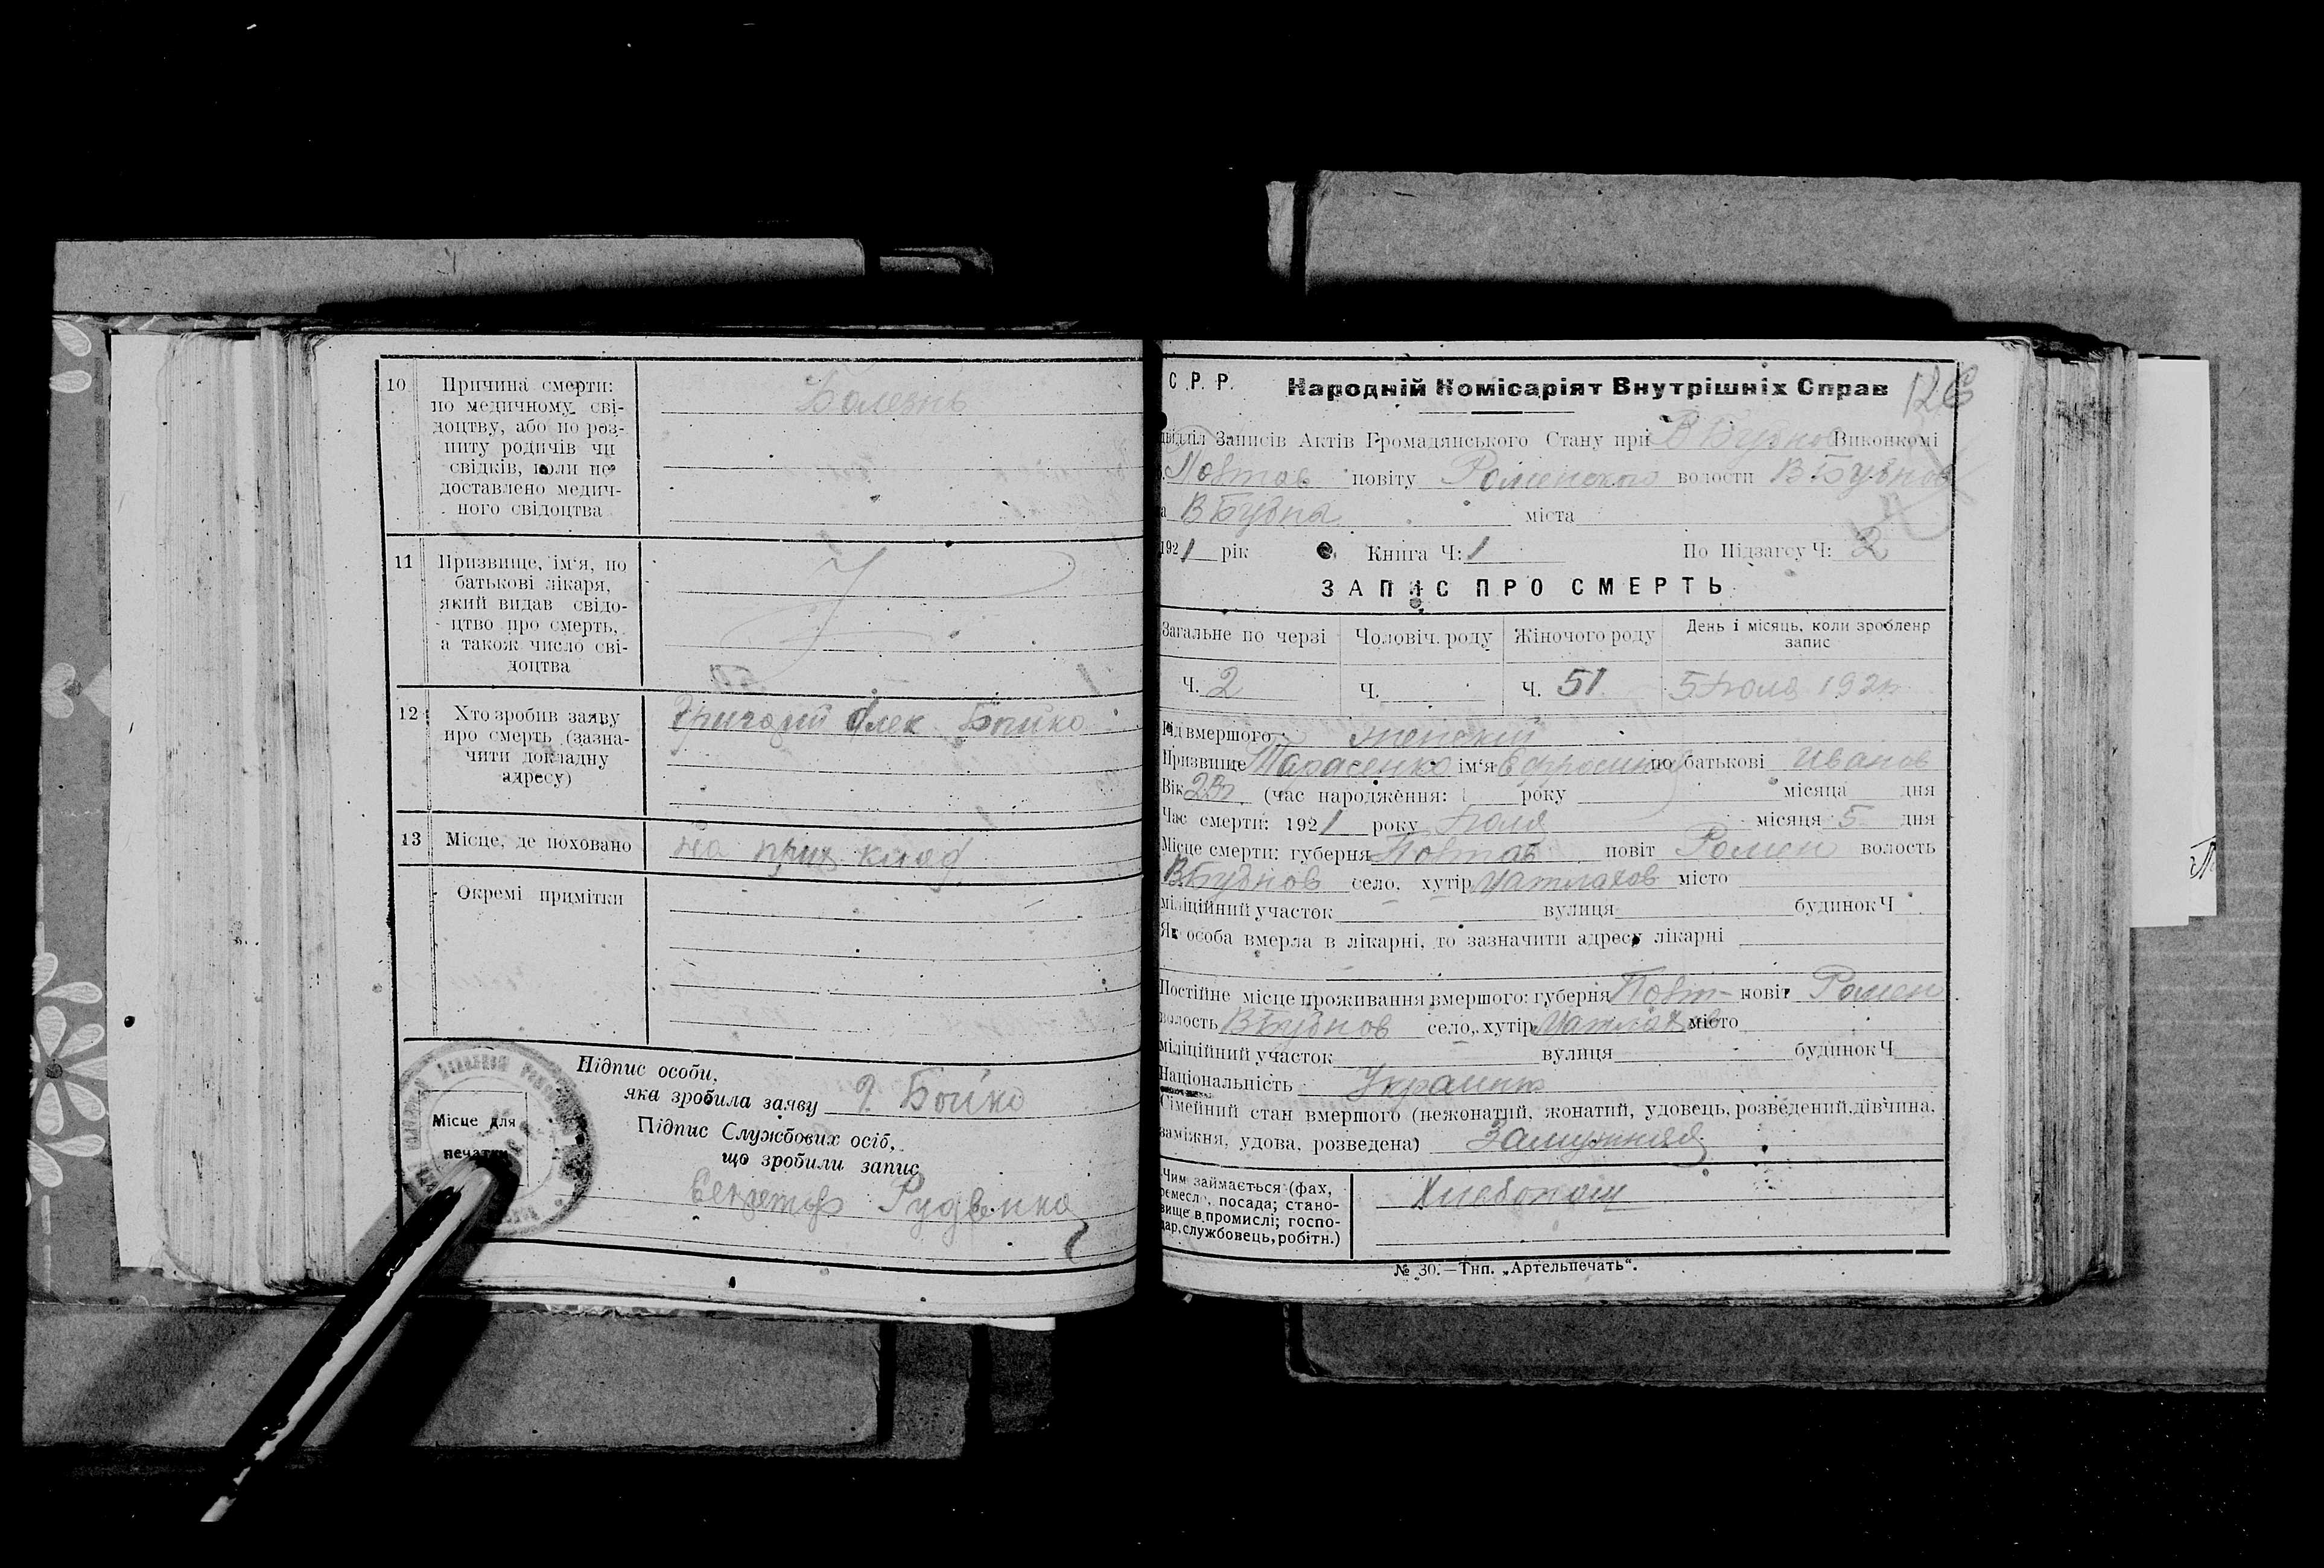 10 Причина смерти: Болезнь
по медичному сві-
доцтву, або по роз-
питу родичів чи
свідків, коли не
доставлено медич-
ного свідоцтва
11 Призвище, ім'я, по
батькові лікаря,
який видав свідо-
цтво про смерть,
а також число сві-
доцтва
12 Хто зробив заяву Григорій Алек Бойко
про смерть (зазна-
чити докладну
адресу)
13 Місце, де поховано на прих клад
Окремі примітки
Підпис особи,
яка зробила заяву Г. Бойко
Місце для
печатки
Підпис Службових осіб,
що зробили запис
Секретарь Руденко
С. Р. Р. Народній Комісаріят Внутрішніх Справ 126
відділ Записів Актів Громадянського Стану при В Бубнов Виконкомі
Повтав повіту Роменского волости В Бубнов
а В Бубна міста
1921 рік Книга Ч: 1 По Підзагсу Ч: 2
ЗАПИС ПРО СМЕРТЬ
Загальне по черзі Чоловіч. роду Жіночого роду День і місяць, коли зроблено
запис
Ч. 2 Ч. Ч. 51 5 Іюля 192
Рід вмершого женский
Призвище Тарасенко ім'я Ефросиня по батькові Иванов
Вік (час народження: 1 року місяця дня
Час смерти: 1921 року Іюля місяця 5 дня
Місце смерти: губерня Повтав повіт Ромен волость
В.Бубнов село, хутір Матлахов місто
міліційний участок вулиця будинок Ч
Як особа вмерла в лікарні, то зазначити адресу лікарні
Постійне місце проживання вмершого: губерня Повт повіт Ромен
волость В Бубнов село, хутір Матлахов місто
міліційний участок вулиця будинок Ч
Національність Украинк
Сімейний стан вмершого (нежонатий, жонатий, удовець, розведений, дівчина,
заміжня, удова, розведена) Замужняя
Чим займається (фах, Хлебопаш
ремесло, посада; стано-
вище в промислі; госпо-
дар, службовець, робітн.)
№ 30.—Тип. „Артельпечать“.